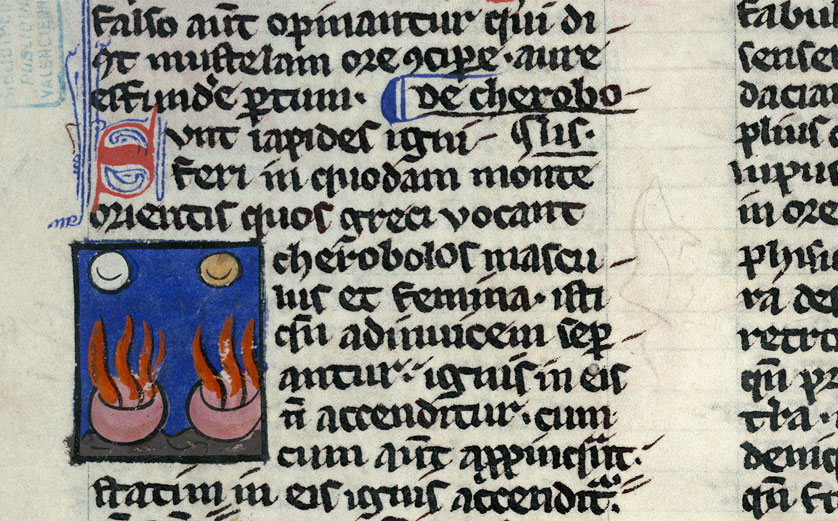 falso aūt opinantur qui di
cūt mustelam ore ꝯcipe · aure
effund'e ꝑtum · De cherobo
Sunt lapides igni
lis ·
feri in quodam monte
orientis quos greci vocant
cherobolos mascu
lus et femina · isti
qn̄ adinuicem sep
antur · ignis in eis
n̄ accenditur · cum
cum aūt
statim in eis ignis accendit̄ ·
fabul
sense
dacia
plius
lupus
in ore
phisi
ra de
retro
qn̄ pr
t̄ra ·
deniq
VALENCIENN